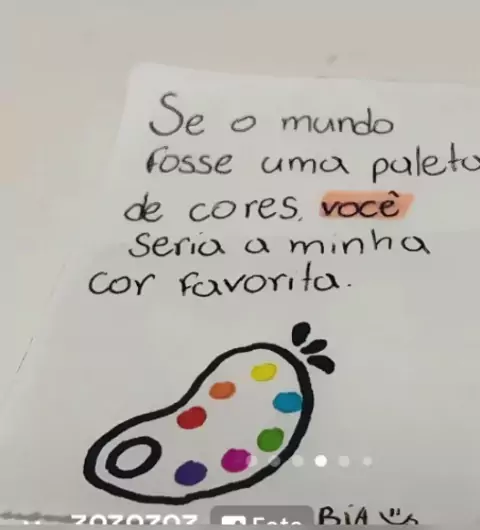 Se o mundo
fosse uma paleta
de cores, você
seria a minha
cor favorita.
BIA